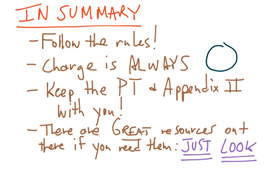 IN SUMMARY
- Follow the rules!
- Charge is ALWAYS
- Keep the PT & Appendix II
with you!
- There are GREAT resources out
there if you need them: JUST LOOK